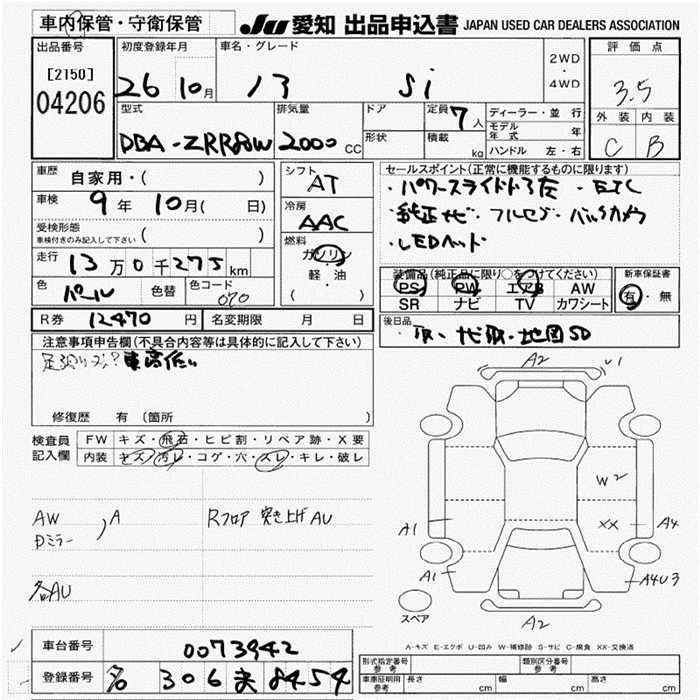 車内保管・守衛保管
JU 愛知 出品申込書 JAPAN USED CAR DEALERS ASSOCIATION
出品番号 初度登録年月 車名・グレード 2WD・4WD 評価点
[2150]
04206
26 10月 Si 3.5
外装 内装
C B
型式 排気量 ドア 定員 7人 ディーラー・並行
DBA-ZRR80W 2000CC 形状 積載 kg モデル年式 年
ハンドル 左・右
車歴 自家用・( )
シフト AT
セールスポイント(正常に機能するものに限ります)
・パワースライドドア左 ・ETC
・純正ナビ・フルセグ・バックカメラ
・LEDヘッド
車検 9年 10月( 日)
冷房 AAC
受検形態 ( )
車検付きのみ記入して下さい
燃料 ガソリン
軽・油
( )
走行 13万0千275km
色 パール 色替 色コード 070
装備品(純正品に限り○をつけてください) 新車保証書
PS PW エアB AW
SR ナビ TV カワシート
有・無
R券 12470円 名変期限 月 日
後日品
・ナビ取・地図SD
注意事項申告欄(不具合内容等は具体的に記入して下さい)
車高低い
修復歴 有 (箇所
検査員記入欄
FW キズ・飛石・ヒビ割・リペア跡・X要
内装 キズ・汚レ・コゲ・穴・スレ・キレ・破レ
AW
Dミラー
A
Rフロア 突き上げAU
各AU
A2
√1
W2
XX
A1
A4
A1
A4U3
スペア
A2
A-キズ E-エクボ U-凹み W-補修跡 S-サビ C-腐食 XX-交換済
車台番号 0073942
登録番号 306 8454
型式指定番号 参考 類別区分番号 参考
車庫証明用 参考 長さ cm 幅 cm 高さ cm